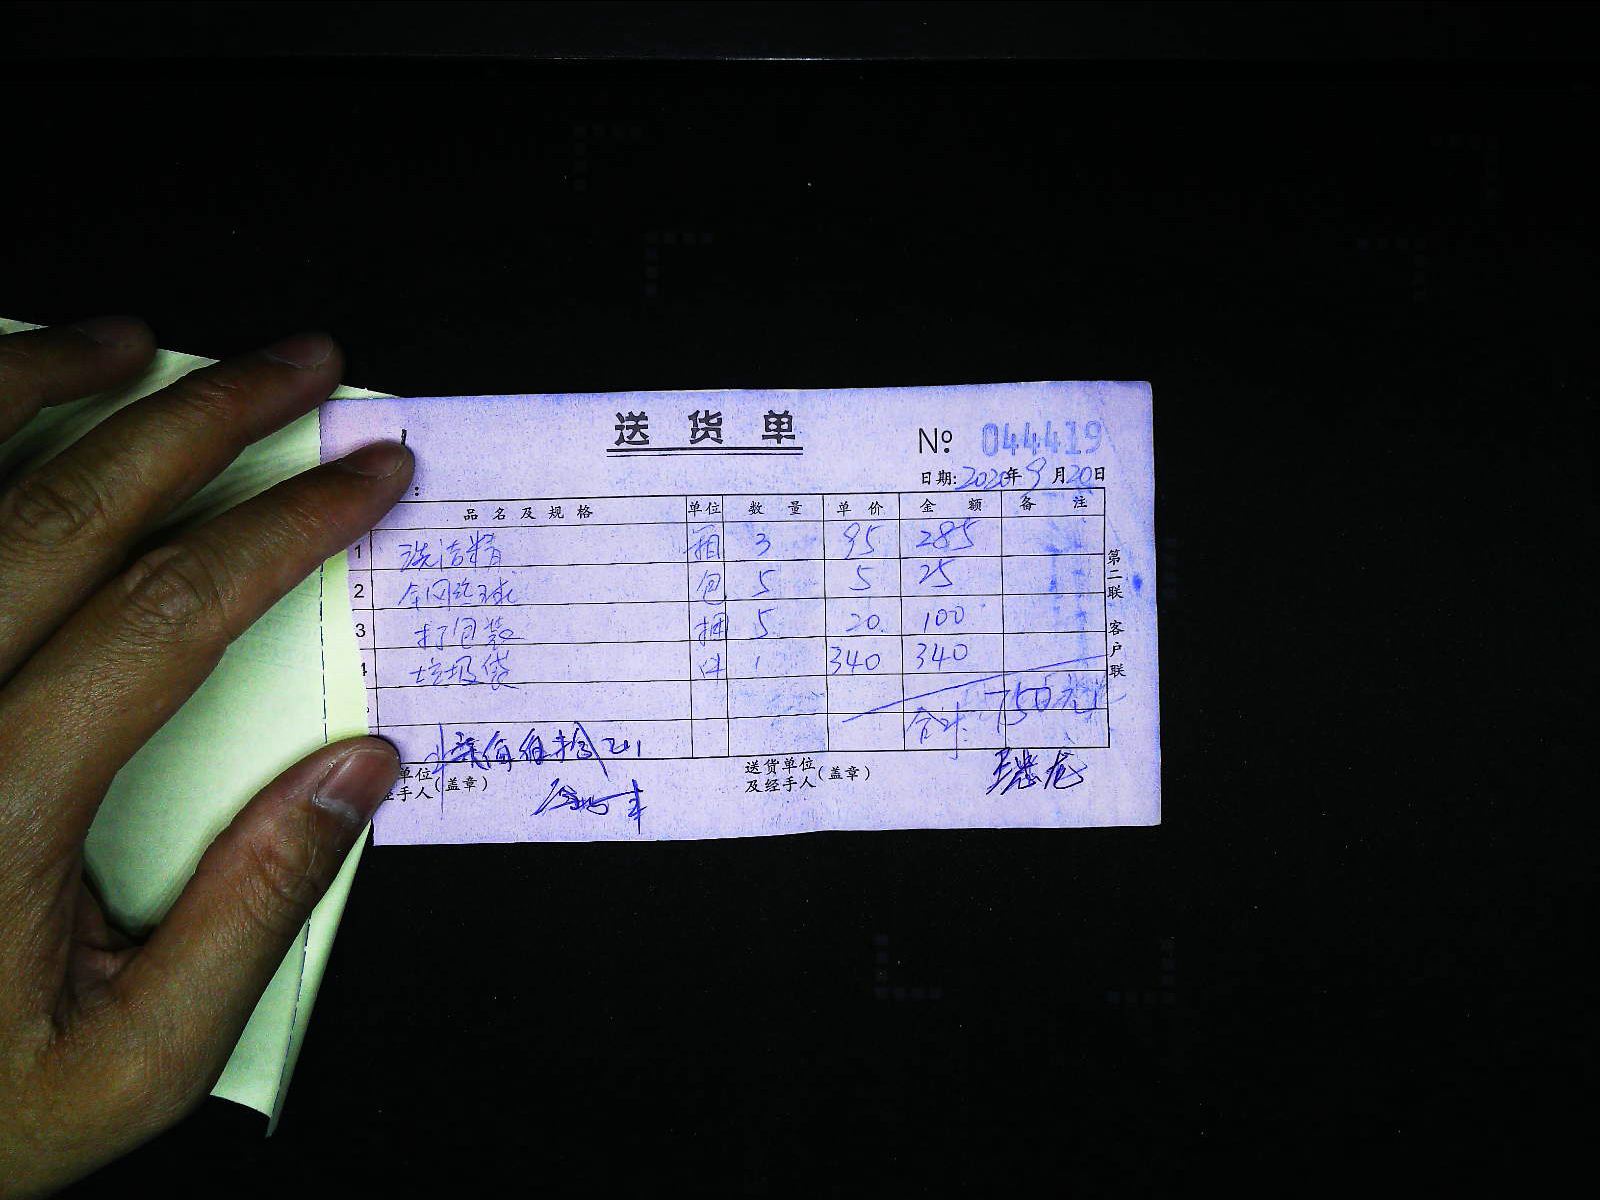 送货单
№ 044419
日期: 2020年9月20日
品名及规格 单位 数量 单价 金额 备注
1 洗洁精 箱 3 95 285
2 全网丝球 包 5 5 25
3 打包袋 捆 5 20 100
4 垃圾袋 件 1 340 340
合计: 750元
单位
经手人(盖章)
送货单位
及经手人(盖章)
第二联 客户联